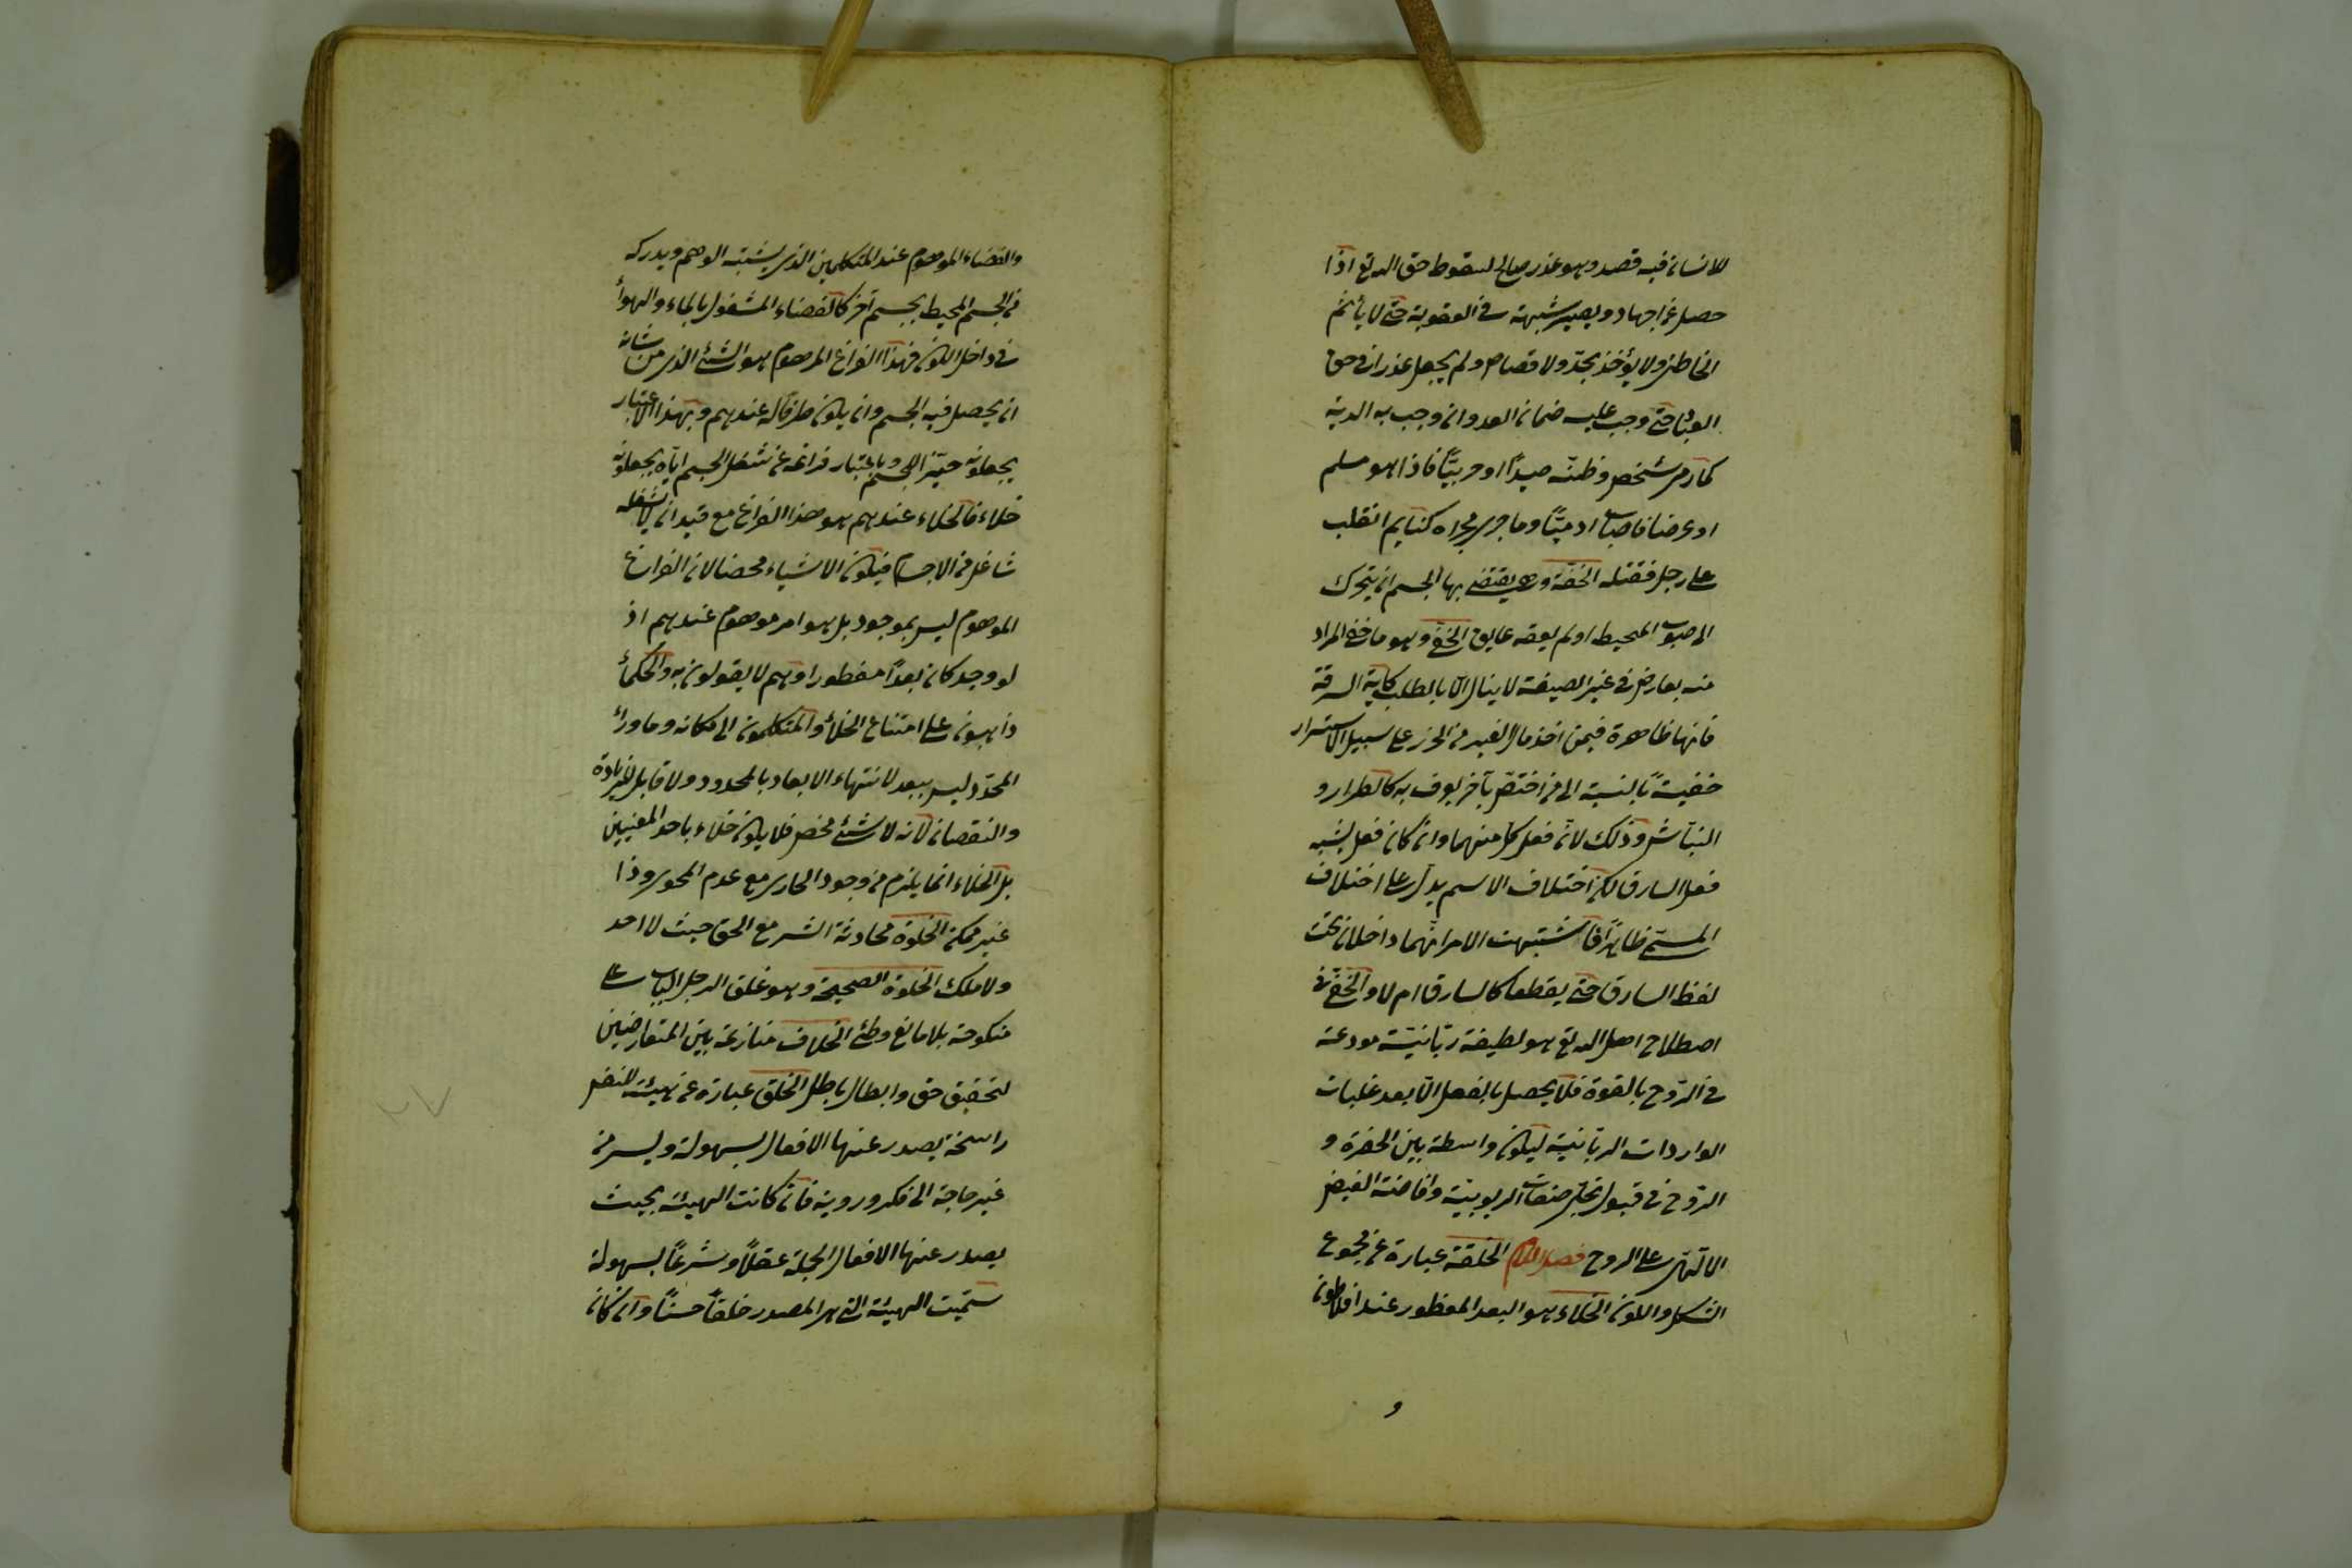 للانسان فيه قصد وهو عذر صالح لسقوط حق الله تع اذا
حصل عن اجتهاد ويصير شبهة في العقوبة حتى لا يأثم
الخاطئ ولا يؤخذ بحدّ ولا قصاص ولم يجعل عذرا في حق
العباد حتى وجب عليه ضمان العدوان ووجب به الدية
كما رمى شخص وظنّه صيدًا او حربيًّا فاذا هو مسلم
او غرضا فاصاب ادميًّا وما جرى مجراه كنايم انقلب
على رجل فقتله الخفة وهي يقتضى بها الجسم ان يتحرك
الى صوب المحيط او لم يعقه عايق الخفيّ وهو ما خفي المراد
منه بعارض في غير الصيغة لا ينال الّا بالطلب كآية السرقة
فانها ظاهرة فيمن اخذ مال الغير من الحرز على سبيل الاستسرار
خفية بالنسبة الى من اختصّ بآخر يعرف به كالطرار و
النبّاش وذلك لانّ فعل كل منهما وان كان فعل يشبه
فعل السارق لكن اختلاف الاسم يدلّ على اختلاف
المسمّى ظاهرًا فاشتبهت الامر انّهما داخلان تحت
لفظ السارق حتى يقطعا كالسارق ام لا والخفيّ في
اصطلاح اهل الله تع هو لطيفة ربّانيّة مودعة
في الرّوح بالقوة فلا يحصل بالفعل الّا بعد غلبات
الواردات الربّانيّة ليكون واسطة بين الحضرة و
الرّوح في قبول تجلّي صفات الربوبيّة وافاضة الفيض
الالٓهيّ على الروح فصل اللام الخلقة عبارة عن مجموع
الشكل واللون الخلاء هو البعد المفطور عند افلاطون
و
والفضاء الموهوم عند المتكلمين الذي يثبته الوهم ويدركه
من الجسم المحيط بجسم آخر كالفضاء المشغول بالماء والهوأ
في داخل الكون فهذا الفراغ الموهوم هو الشئ الذي من شانه
ان يحصل فيه الجسم وان يكون ظرفًا له عندهم وبهذا الاعتبار
يجعلونه حيّزا للجسم وباعتبار فراغه عن شغل الجسم ايّاه يجعلونه
خلاء فالخلاء عندهم هو هذا الفراغ مع قيد ان لا يشغله
شاغل من الاجسام فيكون لا شيئا محضا لان الفراغ
الموهوم ليس بموجود بل هو امر موهوم عندهم اذ
لو وجد كان بعدًا مفطورا وهم لا يقولون به والحكمأ
ذاهبون على امتناع الخلأ والمتكلمون الى امكانه وما ورأ
المحدّد ليس ببعد لانتهاء الابعاد بالمحدود ولا قابل للزيادة
والنقصان لانه لا شئ محض فلا يكون خلاء باحد المعنيين
بل الخلاء انما يلزم من وجود الحاوي مع عدم المحوي وذا
غير ممكن الخلوة محادثة السّرّ مع الحق حيث لا احد
ولا ملك الخلوة الصحيحة وهو غلق الرجل الباب على
منكوحة بلا مانع وطئ الخلاف منازعة بين المتعارضين
لتحقيق حق وابطال باطل الخلق عبارة عن هيئة للنفس
راسخة يصدر عنها الافعال بسهولة ويسر من
غير حاجة الى فكر وروية فان كانت الهيئة بحيث
يصدر عنها الافعال الجميلة عقلًا وشرعًا بسهولة
سمّيت الهيئة التي هي المصدر خلقًا حسنًا وان كان